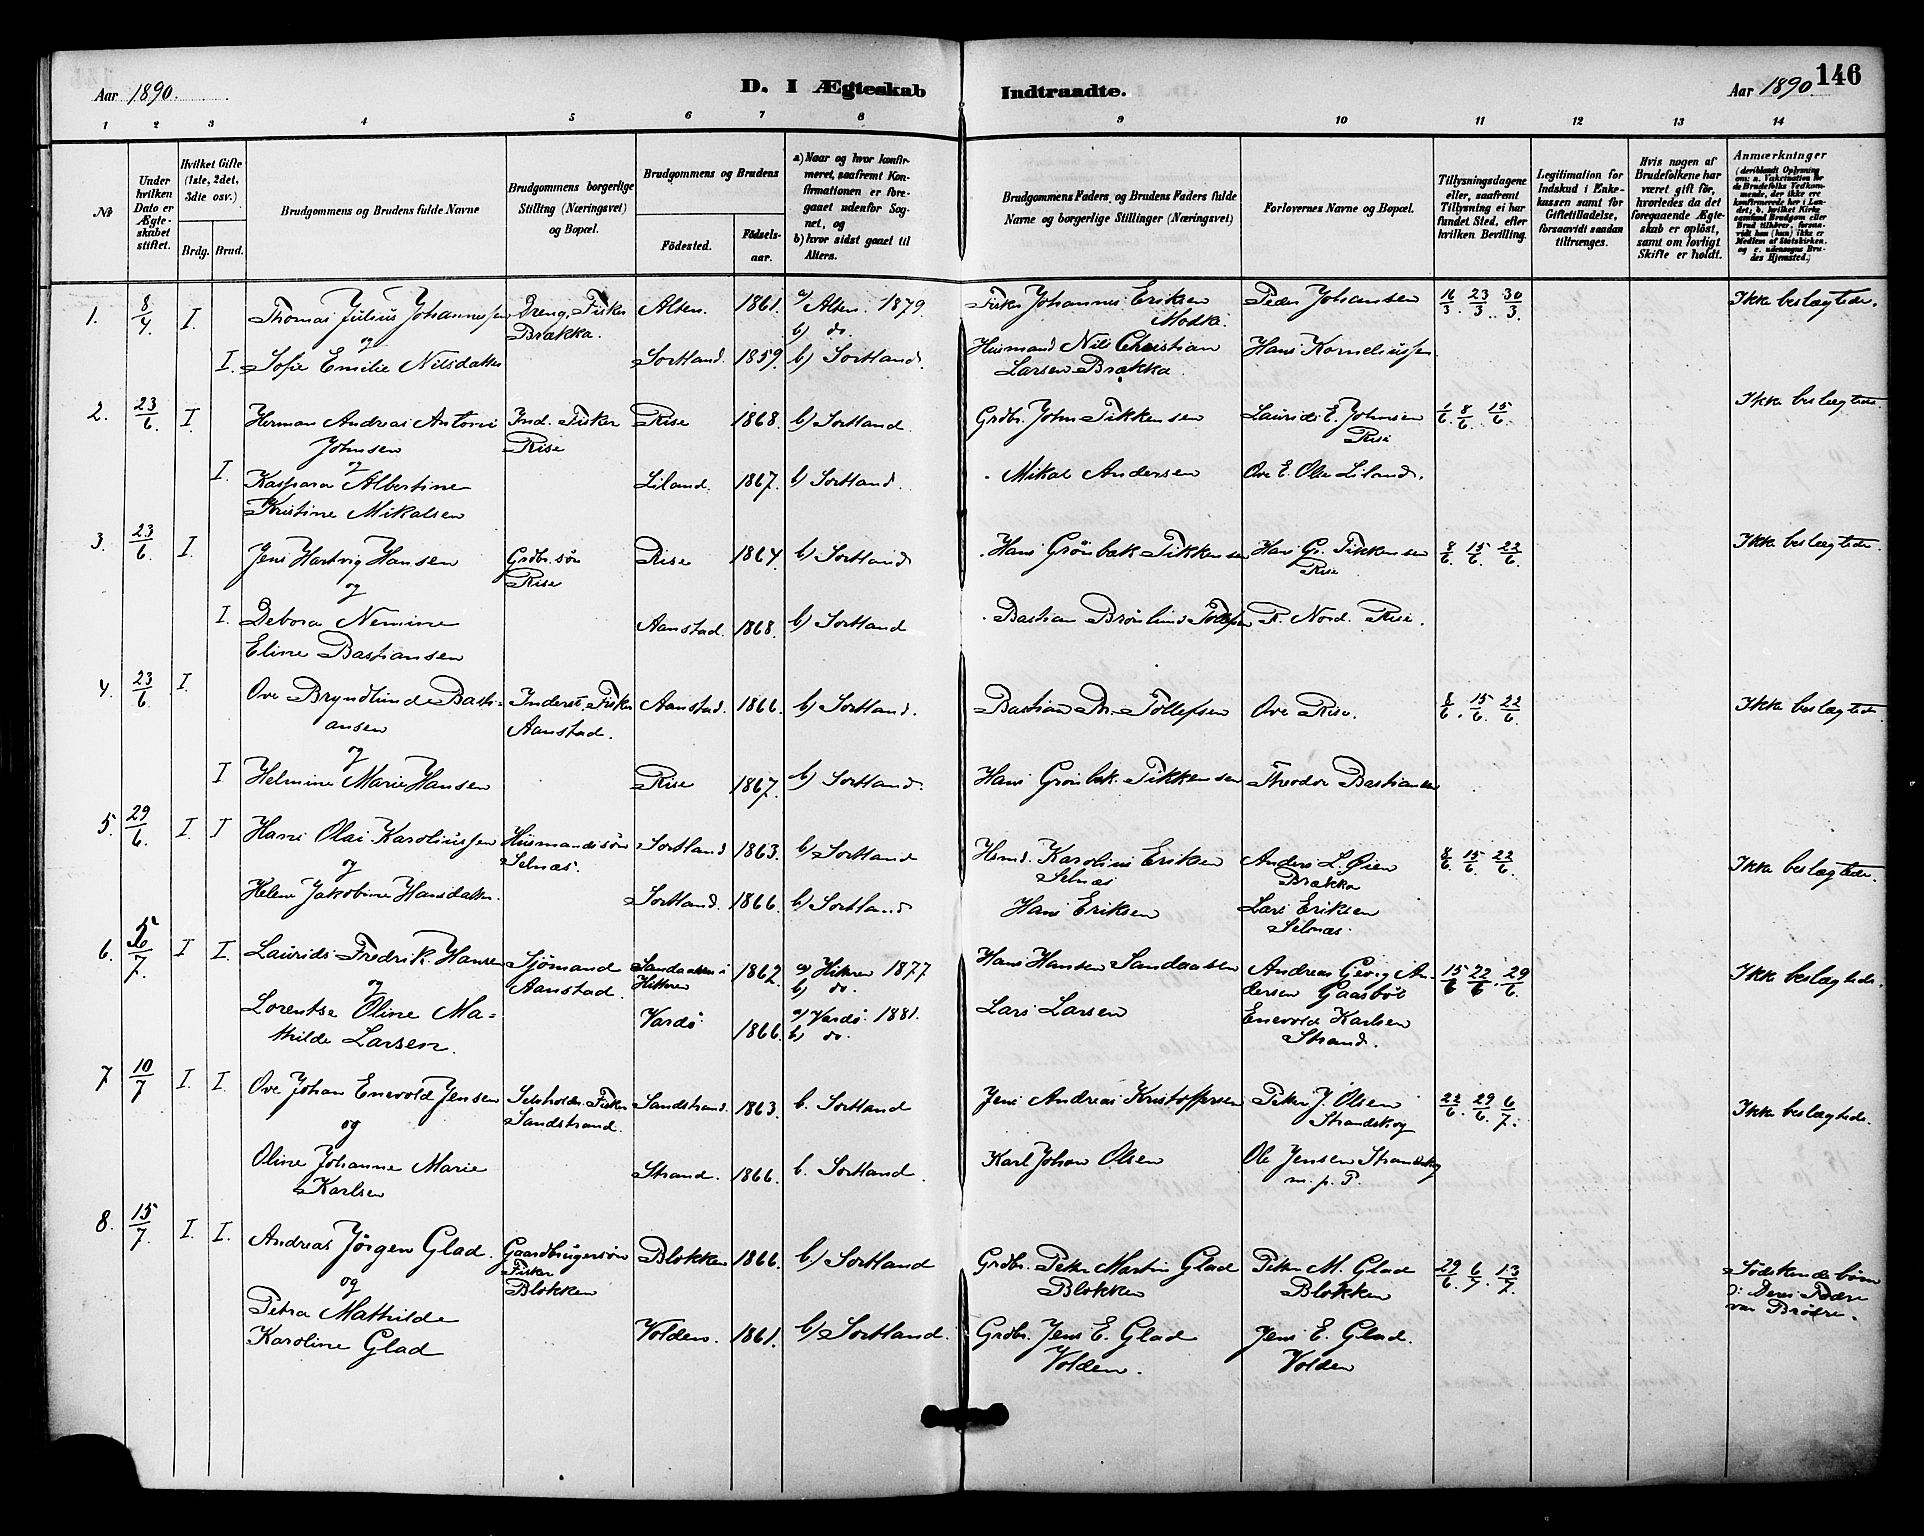 146
Aar 1890. D. I Ægteskab Indtraadte. Aar 1890.
1 2 3 4 5 6 7 8 9 10 11 12 13 14
№
Under hvilken Dato er Ægteskabet stiftet.
Hvilket Gifte (1ste, 2det, 3die osv.)
Brdg. Brud.
Brudgommens og Brudens fulde Navne
Brudgommens borgerlige Stilling (Næringsvei) og Bopæl.
Brudgommens og Brudens
Födested. Födselsaar.
a) Naar og hvor konfirmeret, saafremt Konfirmationen er foregaaet udenfor Sognet, og
b) hvor sidst gaaet til Alters.
Brudgommens Faders og Brudens Faders fulde Navne og borgerlige Stillinger (Næringsvei)
Forlovernes Navne og Bopæl.
Tillysningsdagene eller, saafremt Tillysning ei har fundet Sted, efter hvilken Bevilling.
Legitimation for Indskud i Enkekassen samt for Giftetilladelse, forsaavidt saadan tiltrænges.
Hvis nogen af Brudefolkene har været gift för, hvorledes da det foregaaende Ægteskab er oplöst, samt om lovligt Skifte er holdt.
Anmærkninger
1. 8/4 I. Thomas Julius Johannessen Dreng, Fisker Alten. 1861. a/ Alten. 1879. Fisker Johannes Eriksen Peder Johansen 16/3. 23/3. 30/3. Ikke beslægtede.
og Brækka. b) do.
I. Sofie Emilie Nilsdatter Sortland. 1859. b) Sortland. Husmand Nils Christian Hans Korneliussen
Larsen Brækka.
2. 23/6 I. Herman Andreas Antoni Ind. Fisker Rise 1868. b) Sortland. Grdbr. John Tikkensen Laurids E. Johnsen 1/6 8/6. 15/6. Ikke beslægtede.
Johnsen Rise Rise
og
I. Kaspara Albertine Liland. 1867. b) Sortland. Mikal Andersen Ove E. Olsen Liland.
Kristine Mikalsen
3. 23/6 I. Jens Hartvig Hansen Grdbr.søn Rise 1864. b) Sortland Hans Grönbek Tikkensen Hans Gr. Tikkensen 8/6. 15/6. 22/6. Ikke beslægtede.
og Rise Rise
I. Debora Nemine Aanstad. 1868. b) Sortland Bastian Brönlund Tollefsen R. Nord. Rise.
Eline Bastiansen
4. 23/6 I. Ove Bryndlund Basti- Inderst, Fisker Aanstad. 1866. b) Sortland. Bastian Br. Tollefsen Ove Rise. 8/6. 15/6. 22/6. Ikke beslægtede.
ansen Aanstad.
og
I Helmine Marie Hansen Rise 1867. b) Sortland. Hans Grönbek Tikkensen Theodor Bastiansen
5. 29/6. I I Hans Olai Karoliussen Husmandssön Sortland 1863. b) Sortland Hsmd. Karolius Eriksen Anders L. Øien 8/6. 15/6. 22/6. Ikke beslægtede.
og Selnæs. Selnæs Brækka
Helene Jakobine Hansdatter. Sortland. 1866. b) Sortland Hans Eriksen Lars Eriksen
Selnæs.
6. 5/7. I I. Laurids Fredrik Hansen Sjömand Sandaasen i 1862. a) Hitteren 1877 Hans Hansen Sandaasen Andreas Georg An- 15/6 22/6. 29/6. Ikke beslægtede.
og Aanstad. Hitteren b) do. dersen Gaasböl
Lorentse Oline Ma- Vardö 1866. a) Vardö. 1881. Lars Larsen Enevold Karlsen
thilde Larsen. b) do. Strand.
7 10/7 I. I. Ove Johan Enevold Jensen Selvholder Fisker Sandstrand. 1863. b. Sortland Jens Andreas Kristoffersen Peter J. Olsen 22/6. 29/6. 6/7. Ikke beslægtede.
og Sandstrand. Strandskog
Oline Johanne Marie Strand. 1866. b. Sortland. Karl Johan Olsen Ole Jensen Strandskog
Karlsen m. p. P.
8. 15/7. I. I. Andreas Jörgen Glad. Gaardbrugersön Blokken 1866. b) Sortland Grdbr. Peter Martin Glad Peter M. Glad 29/6. 6/7. 13/7. Södskendebörn
og Fisker Blokken Blokken Deres Fædre
Petra Mathilde Blokken var Brödre.
Karoline Glad Volden. 1861. b) Sortland. Grdbr. Jens E. Glad Jens E. Glad.
Volden. Volden